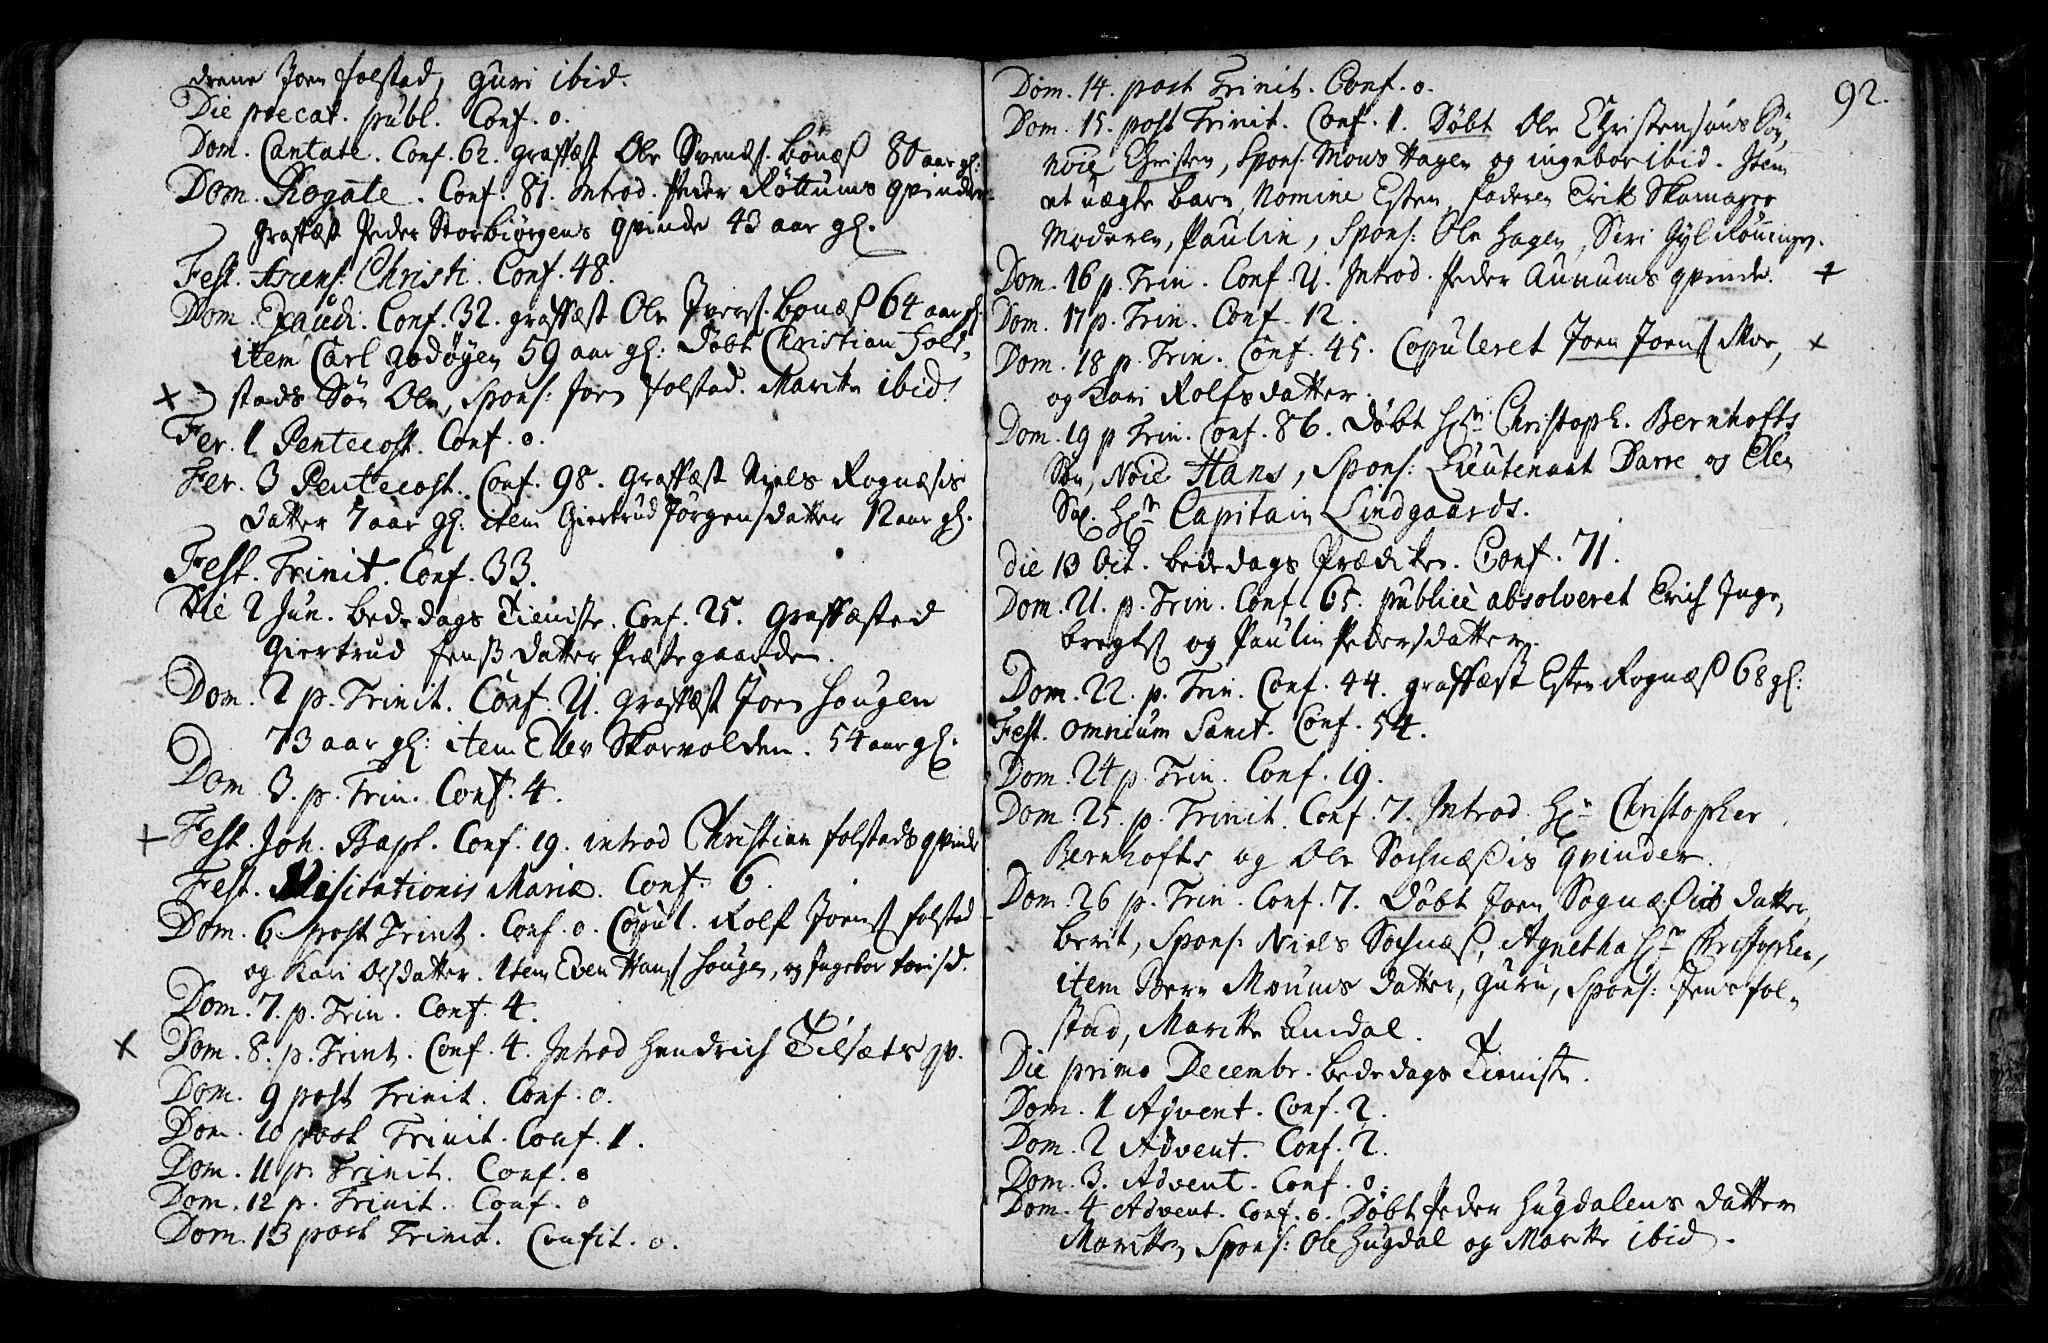 drene Joen folstad, guri ibid.
Die precat. publ. Conf. 0.
Dom. Cantate. Conf. 62. graffæst Ole Svends. bonæs 80 aar gl:
Dom. Rogate. Conf. 81. Introd. Peder Røttums qvinde
graffæst Peder Storbiørgens qvinde 43 aar gl.
Fest. Ascens: Christi. Conf. 48.
Dom. Exaudi. Conf. 32. graffæst Ole Ivers. bonæs 64 aar gl.
item Carl godøyen 59 aar gl: Døbt Christian fol,
stads Søn Ole, Spons: Joen folstad. Maritte ibid.
Fer. 1 Pentecost. Conf. 0.
Fer. 3 Pentecost. Conf. 98. graffæst Niels Rognæsis
datter 7 aar gl. item Giertrud Jørgensdatter 12 aar gl.
Fest. Trinit. Conf. 33.
Die 2 Jun. bededags Tieniste. Conf. 25. graffæsted
Giertrud Jensdatter Præstegaarden.
Dom. 2 p. Trinit. Conf. 21. graffæst Joen hougen
73 aar gl: item Ellev Skarvolden. 54 aar gl.
Dom. 3. p. Trin. Conf. 4.
+ Fest. Joh. Bapt. Conf. 19. introd Christian folstads qvinde
Fest. Visitationis Mariæ. Conf. 6.
Dom. 6. post Trinit. Conf. 0. Copul. Rolf Joens. folstad
og Kari Olsdatter. Item Even Hans. hougen, og Ingebor torisd.
Dom. 7. p. Trin. Conf. 4.
x Dom. 8. p. Trinit. Conf. 4. Introd hendrich Tilsæts qv.
Dom. 9 post Trinit. Conf. 0.
Dom. 10 post Trinit. Conf. 1.
Dom. 11 p. Trinit. Conf. 0
Dom. 12 p. Trinit. Conf. 0
Dom. 13 post Trinit. Confit. 0.
92.
Dom. 14. post Trinit. Conf. 0.
Dom. 15. post Trinit. Conf. 1. Døbt Ole Christensøns Søn,
Noie Christen, Spons: Mons Hagen og ingebor ibid. Item
et uægte barn, Nomine Esten, faderen Erik
Moderen, Paulin, Spons: Ole hagen, Seri
Dom. 16 p. Trin. Conf. 21. Introd. Peder Aunums qvinde. +
Dom. 17 p. Trin. Conf. 12.
Dom. 18 p. Trin. Conf. 45. Copuleret Joen Joens. Moe, x
og Kari Rolfsdatter.
Dom. 19 p Trin. Conf. 86. Døbt Hr Christoph. Bernhofts
Søn, Noie Hans, Spons: Lieutenant Darre og Elen
Sal. Hr Capitain Lindgaards.
Die 13 Oct. bededags Prædiken. Conf. 71.
Dom. 21. p. Trin. Conf. 65. publicè absolveret Erich Inge,
bregts. og Paulin Pedersdatter.
Dom. 22. p. Trin. Conf. 44. graffæst Esten Rognæs 68 gl:
Fest. omnium Sanct. Conf. 54.
Dom. 24 p. Trin. Conf. 19.
Dom. 25. p. Trinit. Conf. 7. Introd. Hr Christopher
Bernhofts og Ole Sochnæsis qvinder.
Dom. 26 p. Trin. Conf. 7. Døbt Joen Sognæsis datter,
berit, Spons: Niels Sochnæs, Agnetha Hr Christopher,
item Bern Moums datter, Guru, Spons: Jens fol-
stad, Maritte
Die primo Decembr. bededags Tieniste.
Dom. 1 Advent. Conf. 2.
Dom. 2 Advent. Conf. 2.
Dom. 3. Advent. Conf. 0.
Dom. 4 Advent. Conf. 0. Døbt Peder hugdalens datter
Maritte, Spons: Ole hugdal og Maritte ibid.